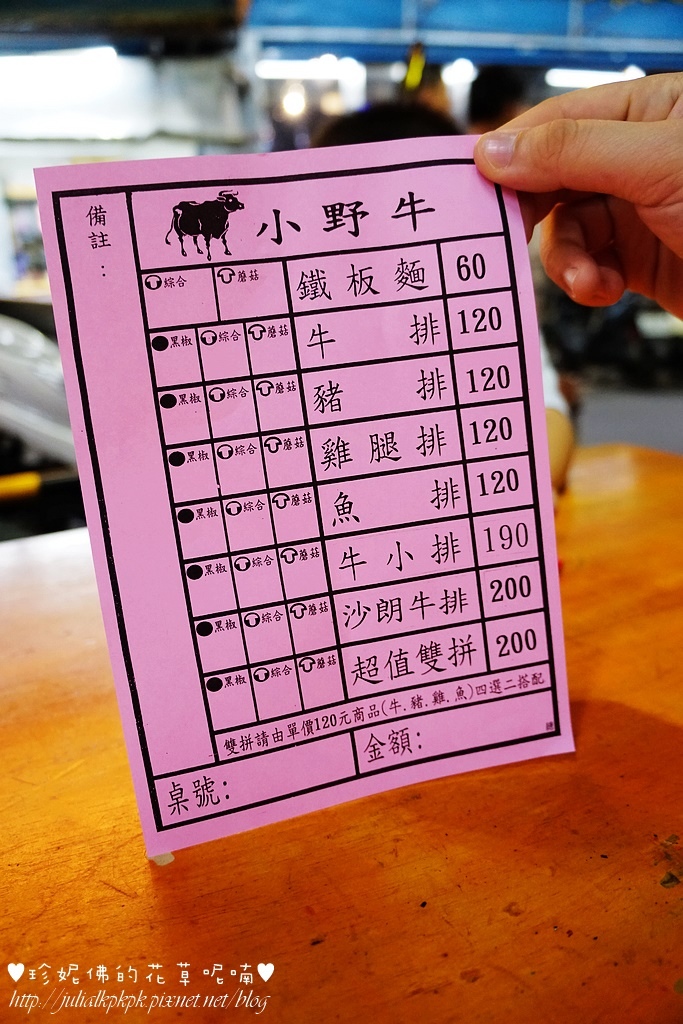 備註：
小野牛
綜合 蘑菇 鐵板麵 60
黑椒 綜合 蘑菇 牛排 120
黑椒 綜合 蘑菇 豬排 120
黑椒 綜合 蘑菇 雞腿排 120
黑椒 綜合 蘑菇 魚排 120
黑椒 綜合 蘑菇 牛小排 190
黑椒 綜合 蘑菇 沙朗牛排 200
黑椒 綜合 蘑菇 超值雙拼 200
雙拼請由單價120元商品(牛.豬.雞.魚)四選二搭配
桌號： 金額：
♥珍妮佛的花草呢喃♥
http://julialkpkpk.pixnet.net/blog